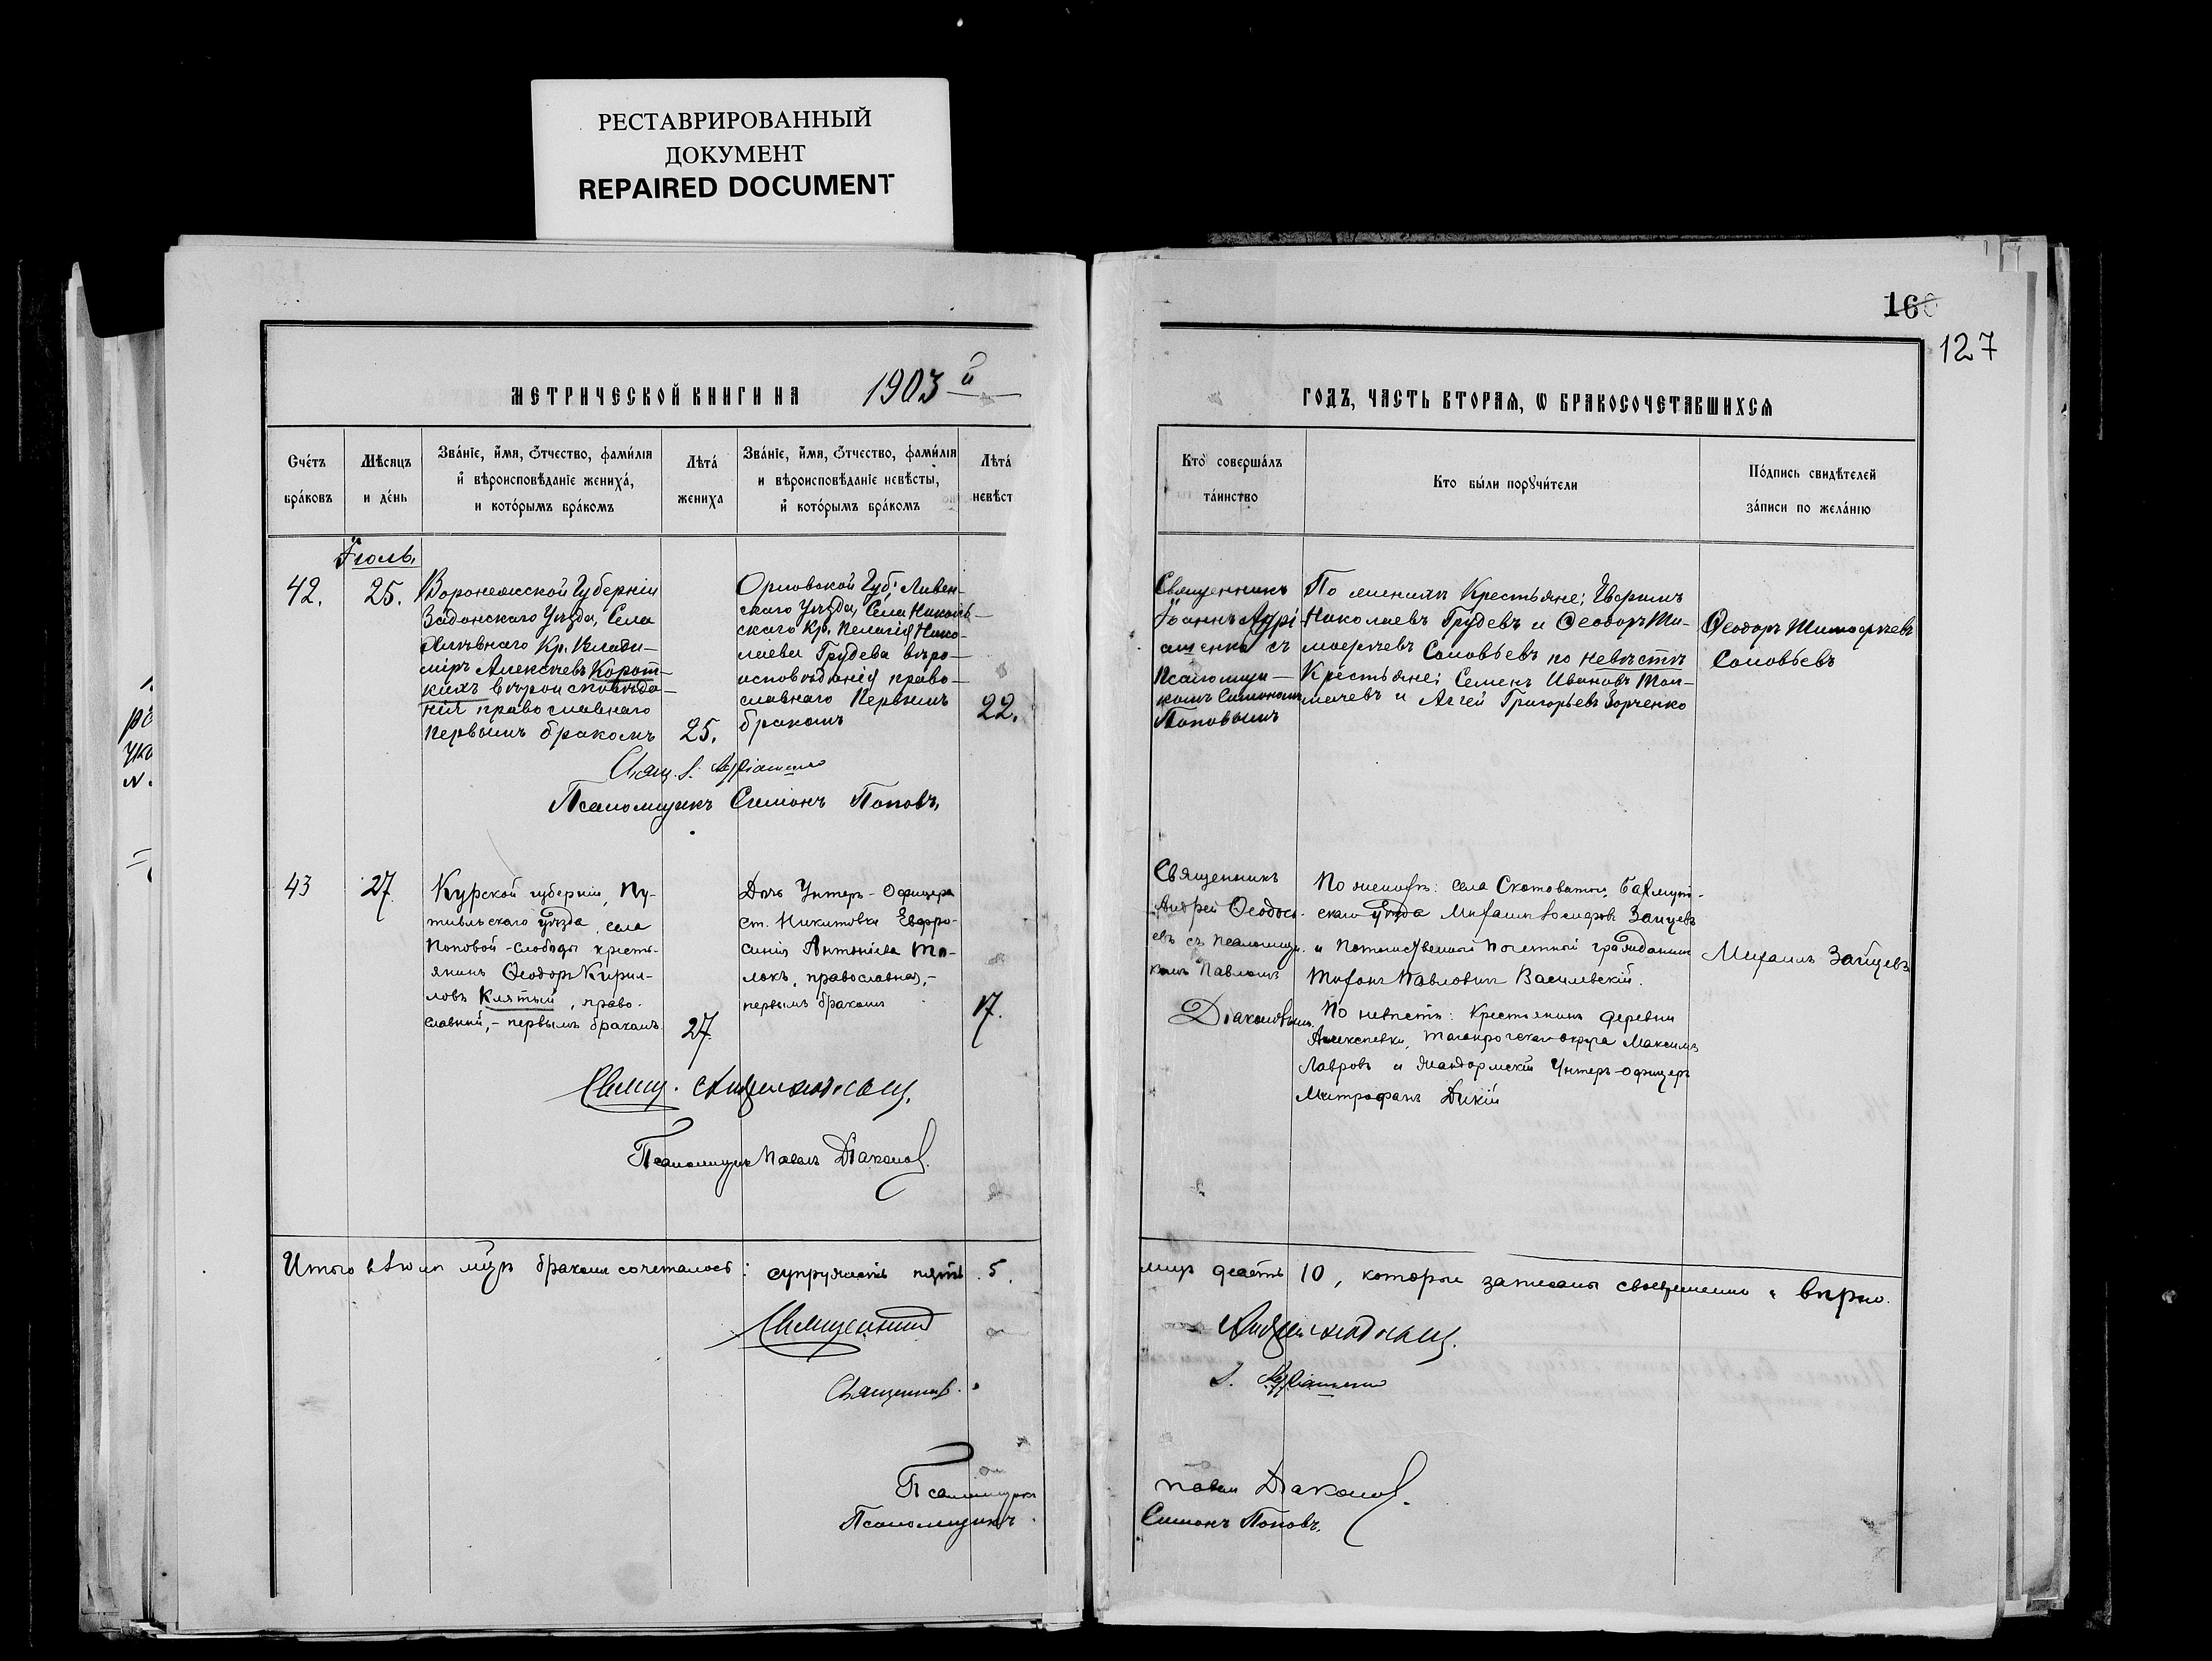 РЕСТАВРИРОВАННЫЙ
ДОКУМЕНТ
REPAIRED DOCUMENT
160
127
МЕТРИЧЕСКОЙ КНИГИ НА 1903 й
ГОДЪ, ЧАСТЬ ВТОРАЯ, Ѡ БРАКОСОЧЕТАВШИХСЯ
Счетъ
браковъ
Мѣсяцъ
и день
Званіе, имя, отчество, фамилія
и вѣроисповѣданіе жениха,
и которымъ бракомъ
Лѣта
жениха
Званіе, имя, отчество, фамилія
и вѣроисповѣданіе невѣсты,
и которымъ бракомъ
Лѣта
невѣст
Кто совершалъ
таинство
Кто были поручители
Подпись свидѣтелей
записи по желанію
Іюль.
42.
25.
Воронежской Губерніи
Задонскаго Уѣзда, Села
Кр. Влади-
міръ Алексѣевъ Корот-
кихъ вѣроисповѣда-
нія православнаго
первымъ бракомъ
25.
Орловской Губ. Ливен-
скаго Уѣзда, Села Николь-
скаго Кр. Пелагія Нико-
лаева Грудева вѣро-
исповѣданія право-
славнаго Первымъ
бракомъ
22.
Священникъ
Іоаннъ Адрі-
ашенко съ
Псаломщи-
комъ Симономъ
Поповымъ
По женихѣ Крестьяне:
Николаевъ Грудевъ и Ѳеодоръ Ти-
мофѣевъ Соловьевъ по невѣстѣ
Крестьяне: Семенъ Ивановъ Тол-
мачевъ и Аггей Григорьевъ Зорченко
Ѳеодоръ Тимофѣевъ
Соловьевъ
Свящ. І. Адріашенко
Псаломщикъ Симонъ Поповъ,
43
27.
Курской губерніи, Пу-
тивльскаго уѣзда, села
Поповой-Слободы кресть-
янинъ Ѳеодоръ Кирил-
ловъ Клятый, право-
славный, - первымъ бракомъ.
27.
Дочь Унтеръ-Офицера
ст. Никитовки Евфро-
синія Антоніева То-
локъ, православная, -
первымъ бракомъ
17.
Священникъ
Андрей Ѳеодось-
евъ съ псаломщи-
комъ Павломъ
Діаконовымъ.
По женихѣ: села Скотоватой, Бахмут-
скаго уѣзда Михаилъ Зайцевъ
и Потомственный почетный гражданинъ
Павловичъ Василевскій.
По невѣстѣ: Крестьянинъ деревни
Алексѣевки, Таганрогскаго округа Максимъ
Лавровъ и Жандармскій Унтеръ-офицеръ
Митрофанъ Дикій
Михаилъ Зайцевъ
Свящ. Андрей Ѳеодосьевъ.
Псаломщикъ Павелъ Діаконовъ.
Итого въ Іюлѣ мцѣ бракомъ сочеталось: супружествъ пять 5.
лицъ десять 10, которые записаны своевременно и вѣрно.
Священникъ Андрей Ѳеодосьевъ.
Священникъ. І. Адріашенко
Псаломщикъ Павелъ Діаконовъ.
Псаломщикъ Симонъ Поповъ.